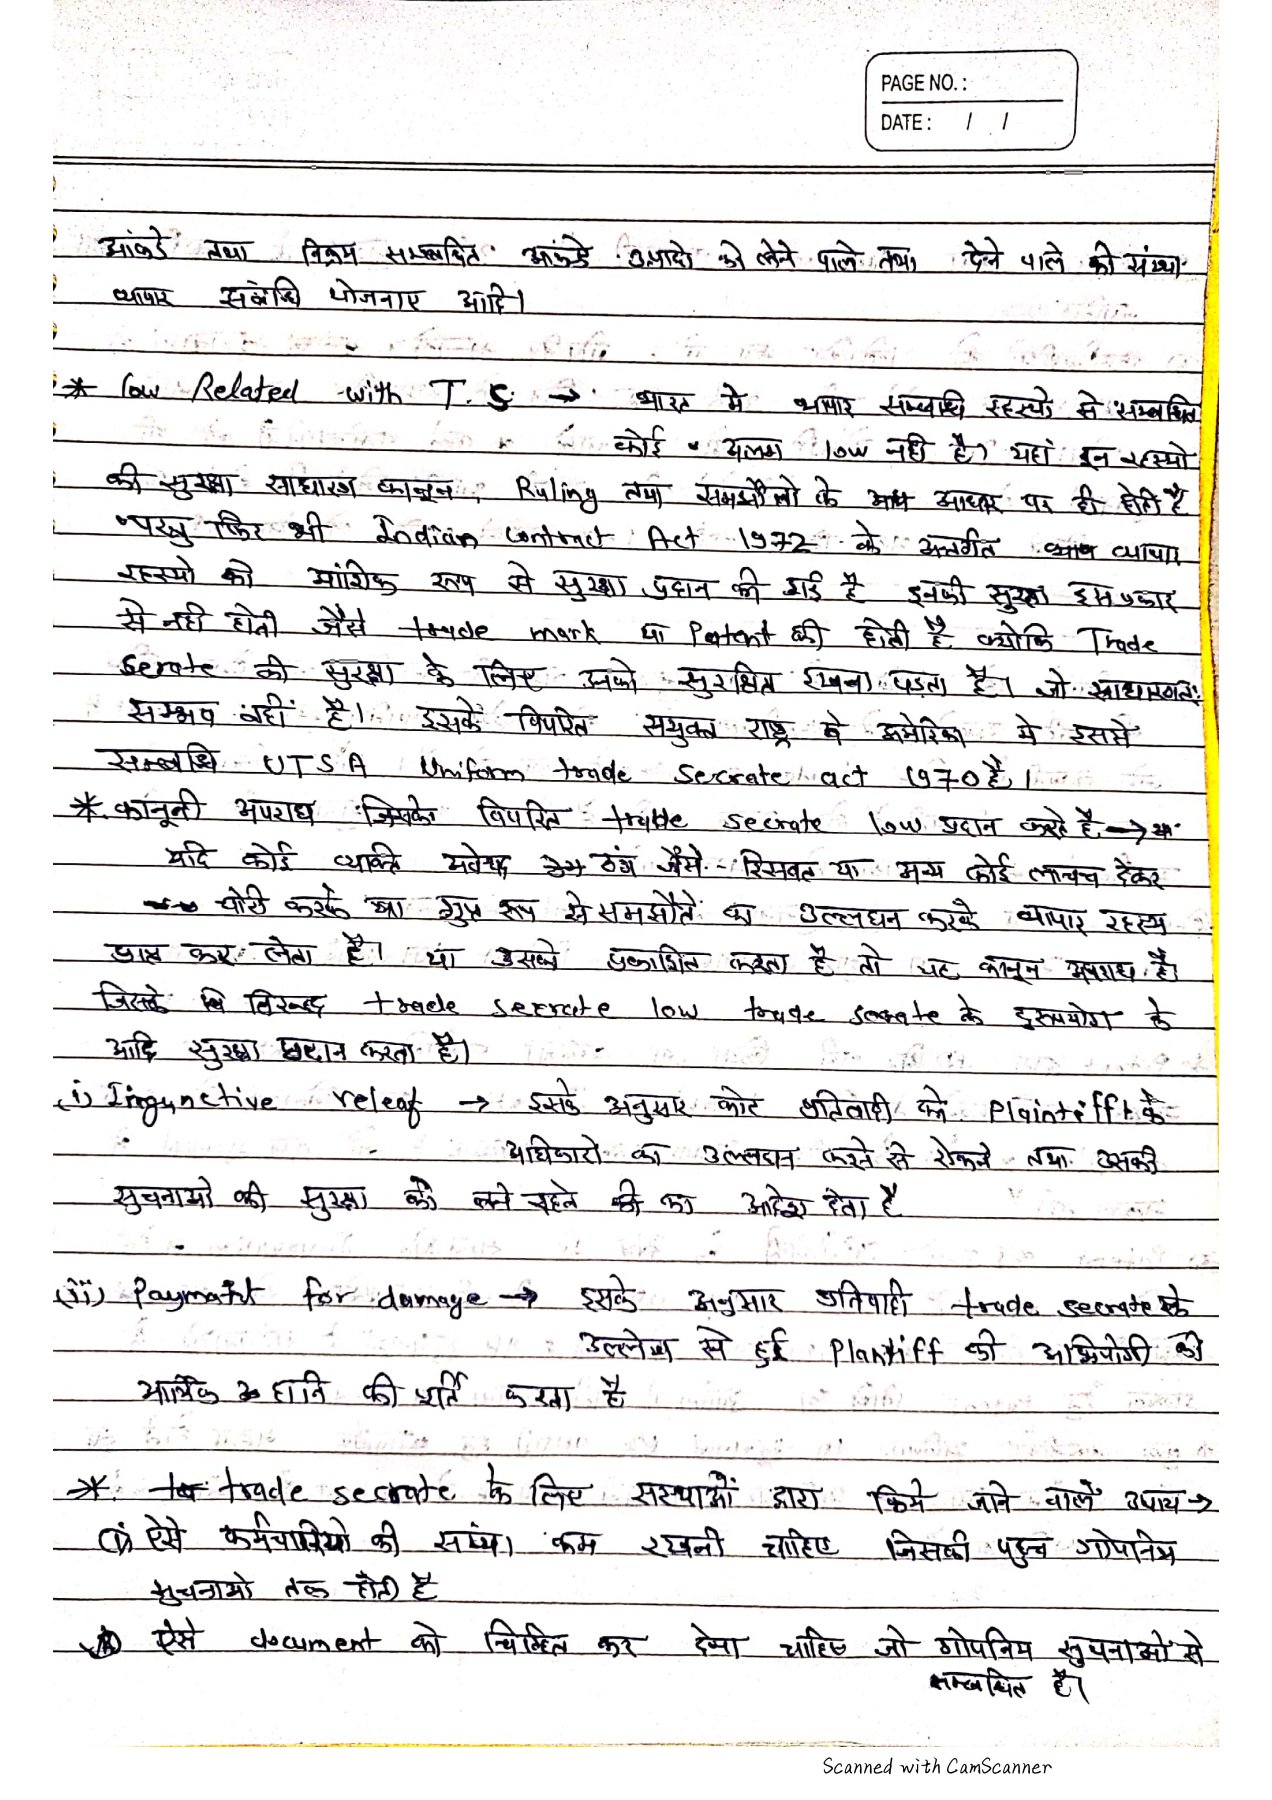 PAGE NO. :
DATE : / /
आंकडे तथा विक्रम सम्बन्धित आंकडे उत्पादो को लेने वाले तथा देने वाले की संख्या
व्यापार सबंधि योजनाए आदि।
* low Related with T.S. → भारत मे व्यापार सम्बन्धि रहस्यो से सम्बन्धित
कोई अलग low नही है। यहां इन रहस्यो
की सुरक्षा साधारण कानून, Ruling तथा समझौतो के आधार पर ही होती है
परन्तु फिर भी Indian contract Act 1972 के अन्तर्गत व्यापार
रहस्यो को आंशिक रूप से सुरक्षा प्रदान की गई है इनकी सुरक्षा इस प्रकार
से नही होती जैसे trade mark या Patent की होती है क्योकि Trade
serate की सुरक्षा के लिए उनको सुरक्षित रखना पडता है। जो साधारणतः
सम्भव नहीं है। इसके विपरित सयुक्त राष्ट्र अमेरिका मे इससे
सम्बन्धि UTSA Uniform trade secrate act 1970 है।
* कानूनी अपराध जिसके विपरित trade secrate low प्रदान करते है →
यदि कोई व्यक्ति अवेध ढंग जैसे - रिसवत या अन्य कोई लालच देकर
चोरी करके या गुप्त रूप से समझौते का उल्लघन करके व्यापार रहस्य
प्राप्त कर लेता है। या उसको प्रकाशित करता है तो यह कानून अपराध है।
जिसके विरुद्ध trade secrate low trade secrate के दुरूपयोग के
आदि सुरक्षा प्रदान करता है।
(i) Ingunctive releaf → इसके अनुसार कोट प्रतिवादी को Plaintifft के
अधिकारो का उल्लघन करने से रोकने तथा उसकी
सुचनाओ की सुरक्षा को बने रहने की का आदेश देता है
(ii) Paymant for damage → इसके अनुसार प्रतिवादी trade secrate के
उल्लेख से हुई Plantiff की अभियोगी की
आर्थिक हानि की पूर्ति करता है
→* trade secrate के लिए सस्थाओं द्वारा किये जाने वाले उपाय →
(i) ऐसे कर्मचारियो की संख्या कम रखनी चाहिए जिसकी पहुच गोपनिय
सुचनाओ तक होती है
ऐसे document को चिन्हित कर देना चाहिए जो गोपनिय सुचनाओ से
सम्बन्धित है।
Scanned with CamScanner